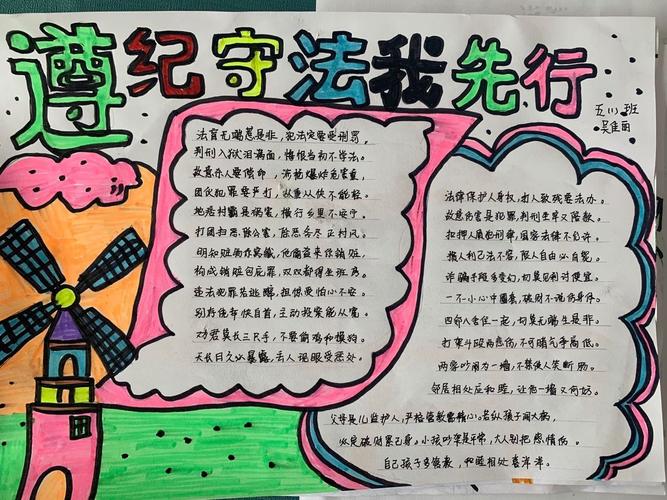 遵纪守法我先行
五(1)班
法盲无端惹是非，犯法定要受刑罪。
判刑入狱泪满面，悔恨当初不学法。
故意杀人要偿命，
团伙犯罪要严打，从重从快不能轻。
地痞村霸是祸害，横行乡里不安宁。
打团扫恶除公害，除恶务尽正村风。
明知赃物你窝藏，他偷盗来你销赃，
构成销赃包庇罪，双双都得坐班房。
违法犯罪若逃避，担惊受怕心不安。
别为侥幸快自首，主动投案能从宽。
劝君莫长三只手，不要偷鸡和摸狗。
天长日久必暴露，去人现眼受惩处。
法律保护人身权，打人致残要法办。
故意伤害是犯罪，判刑坐牢又赔款。
扣押人质他刑律，国家法律不允许。
损人利己法不容，限人自由必自毙。
诈骗手段多变幻，切莫见利讨便宜。
一不小心中圈套，破财不说伤身体。
四邻八舍住一起，切莫无端生是非。
打架斗殴两悲伤，不可赌气争高低。
两家吵闹为一墙，不禁使人笑断肠。
邻居相处应和睦，让他一墙又何妨。
父母是儿监护人，严格管教要精心。若纵孩子闯大祸，
必定破财累己身。小孩吵架是平常，大人别把感情伤。
自己孩子多管教，和睦相处喜洋洋。